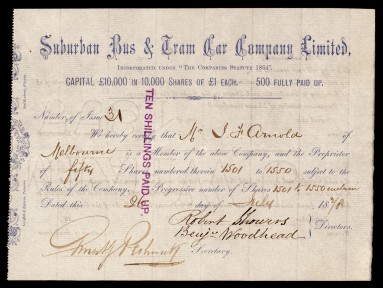 Suburban Bus & Tram Car Company Limited,
INCORPORATED UNDER "THE COMPANIES STATUTE 1864".
CAPITAL £10,000 IN 10,000 SHARES OF £1 EACH. 500 FULLY PAID UP.
Number of Issue 31
TEN SHILLINGS PAID UP.
We hereby certify that Mr J F Arnold of
Melbourne is a Member of the above Company, and the Proprietor
of fifty Shares numbered therein 1501 to 1550 subject to the
Rules of the Company, Progressive number of Shares 1501 to 1550 inclusive
Dated this 26 day of July 187
Robert Showers
Benjn Woodhead
Directors.
Secretary.